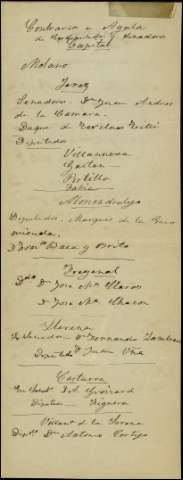 Contrario a Ayala
de Diputados y Senadores
Capital
Molano
Jerez
Senadores. Dn Juan Andres
de la Camara.
Duque de
Diputados
Villanueva
Gaitan
Portillo
Fabia
Almendralejo
Diputados. Marques de la Enco
mienda.
D Jose Baca y Brito
Fregenal
Ddo Dn Jose Ma Claros
Dn Jose Ma Chacon
Llerena
Senador Dn Fernando Zambrano
Diputado Dn Juan Viña
Castuera
Diputado Higuera
Villanª de la Serena
Diptº Dn Antonio Cortijo